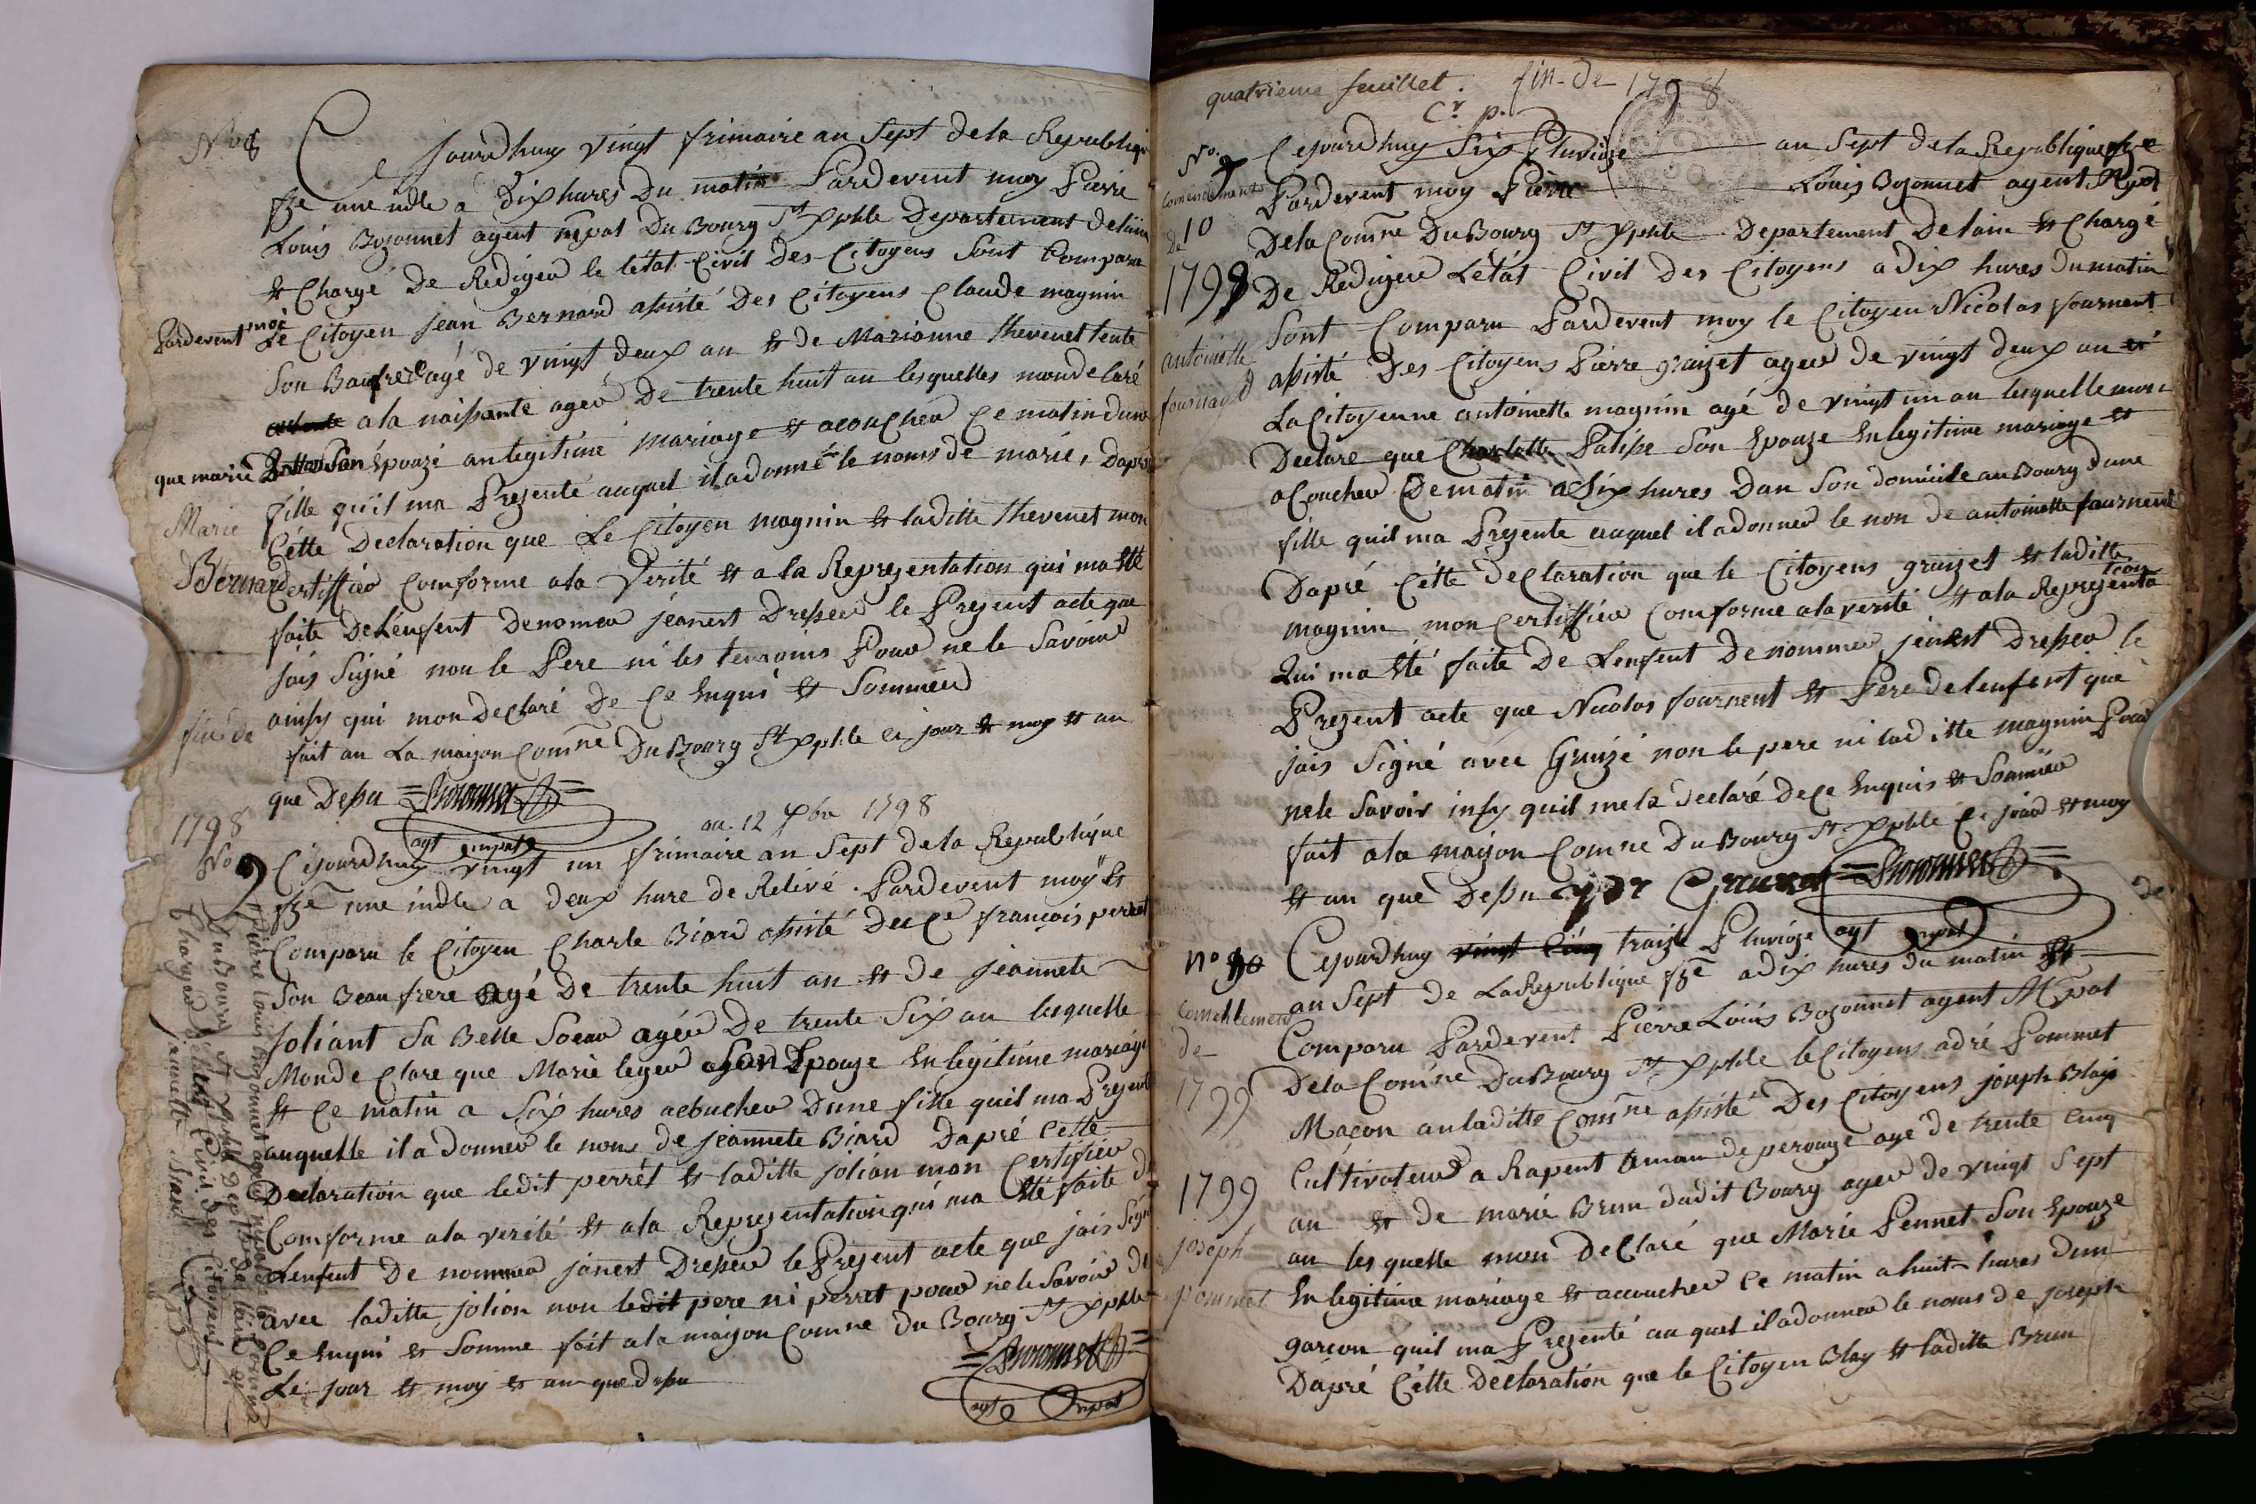 No 8
Ce jourdhuy vingt frimaire an Sept de la Republiq
fze une indle a dix hures Du matin Pardevent moy Pierre
Louis Bozonnet agent mpal Du Bourg St Xphle Departement delain
et Chargé De Rediger le letat Civil Des Citoyens Sont Comparu
Pardevent moé Le Citoyen jean Bernard assisté Des Citoyens Claude magnin
Son Baufrer agé de vingt deux an et de Marianne thevenet tente
a la naissante ageé De trente huit an lesquelles monde laré
que marie Son Epouzé an legitime mariage et acoucher Ce matin dune
fille qu'il ma Prezenté auquel il a donné le noms de marie, Dapré
Cette Declaration que Le Citoyen magnin et laditte thevenet mon
Marie
Bernard
Certiffier Comforme a la verité et a la Reprezentation qui ma eté
faite De Lenfent Denomer jeanest Dresser le Prezent acte que
jais Signé non le Pere ni les temoins Pour ne le Savoire
ainsy qui mon Declaré De Ce Enqui et Sommer
fin de
fait an La maizon Comne Du Bourg St Xphle ce jour et moy et an
que Dessu = Bozonnet =
agt mpal
1798
au 12 Xbre 1798
No 9
Cejourdhuy vingt un frimaire an Sept de la Republique
fze une indle a deux hure de Relivé. Pardevent moy et
Comparu le Citoyen Charle Biard assisté du Ce françois perret
Son Beau frere agé De trente huit an et de jeannete
joliant Sa Belle Soeur agée De trente Six an lesquelle
Mondeclare que Marie leger Son Epouze En legitime mariage
et Ce matin a Six hures acoucher Dune fille quil ma Prezente
auquelle il a donner le noms de jeannete Biard Dapré Cette
Declaration que ledit perret et laditte jolian mon Certifier
Comforme a la verité et a la Reprezentation qui ma eté faite de
Lenfent De nommer janest Dresser le Prezent acte que jais Signé
avec laditte jolion non ledit pere ni perret pour ne le Savoir de
Ce Enqui et Somme fait a la maizon Comne du Bourg St Xphle
Le jour et moy et an que dessu
= Bozonnet =
agt mpal
Pierre Louis Bozonnet agent mpal de la Comune
du Bourg St Xphle Dept de Lain et
Charger de letat Civil des Citoyens
jennette Biard
quatrieme feuillet. fin de 1798
Cr p.
No 9
Cejourdhuy Six Pluvioze an Sept de la Republique fze
Comencement
de 10
1799
Pardevent moy Pierre Louis Bozonnet agent Mpal
De la Comne Du Bourg St Xphle Departement De lain et Chargé
De Rediger Letat Civil Des Citoyens a dix hures du matin
Sont Comparu Pardevent moy le Citoyen Nicolas fournent
antoinette
fournand
assisté Des Citoyens Pierre graizet ager de vingt deux an et
La Citoyenne antoinette magnin agé de vingt un an lesquelle mon
Declare que Charlotte Palisse Son Epouze En legitime mariage et
acoucher Ce matin a Six hures Dan Son domicile au Bourg dune
fille quil ma Prezente auquel il a donner le non de antoinette fournent
Dapré Cette Declaration que le Citoyens graizet et laditte
magnin mon Certiffier Comforme a la verité et a la Reprezentation
Qui ma eté faite De Lenfent De nommer jeanest Dresser le
Prezent acte que Nicolas fournent et Pere de lenfent que
jais Signé avec Graizé non le pere ni laditte magnin Pour
ne le Savoir insy quil me la Declaré De Ce Enquis et Sommer
fait a la maizon Comne Du Bourg St Xphle Ce jour et moy
et an que Dessu = Bozonnet =
agt mpal
No 10
Cejourdhuy vingt Cinq traize Pluvioze
Comencement
de
1799
an Sept de La Republique fze a dix hures du matin Et
Comparu Pardevent Pierre Louis Bozonnet agent Mpal
De la Comne Du Bourg St Xphle le Citoyens adré Pommet
Maçon an laditte Comne assisté Des Citoyens joseph Blay
Cultivateur a Rapent Aman de perouze age de trente Cinq
1799
joseph
pommet
an et de marie Brun dudit Bourg ager de vingt Sept
an lesquelle mon Declaré que Marie Pennet Son Epouze
En legitime mariage et acoucher Ce matin a huit hures Dun
garcon quil ma Prezenté au quel il a donner le noms de joseph
Dapré Cette Declaration que le Citoyen Blay et laditte Brun